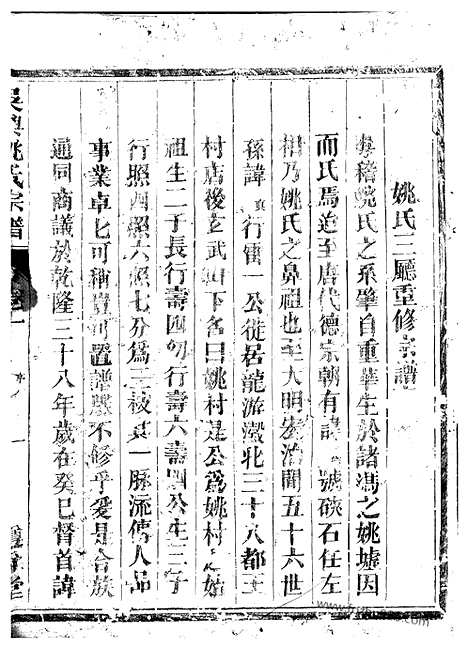 姚氏三廳重修宗譜
粵稽姚氏之系肇自重華生於諸馮之姚墟因
而氏焉迨至唐代德宗朝有諱 號硤石任左
相乃姚氏之鼻祖也至大明宏治間五十六世
孫諱 行雷一公徙居龍游瀔北三十八都王
村店後 武 下名曰姚村是公為姚村 始
祖生二子長行壽四幼行壽六壽四公生三子
行照四照六照七分為三 其一脈流傳人品
事業卓七可稱豈可置譜 不修乎爰是合族
通同商議於乾隆三十八年歲在癸巳督首諱
吳興姚氏宗譜
卷一
一
堂